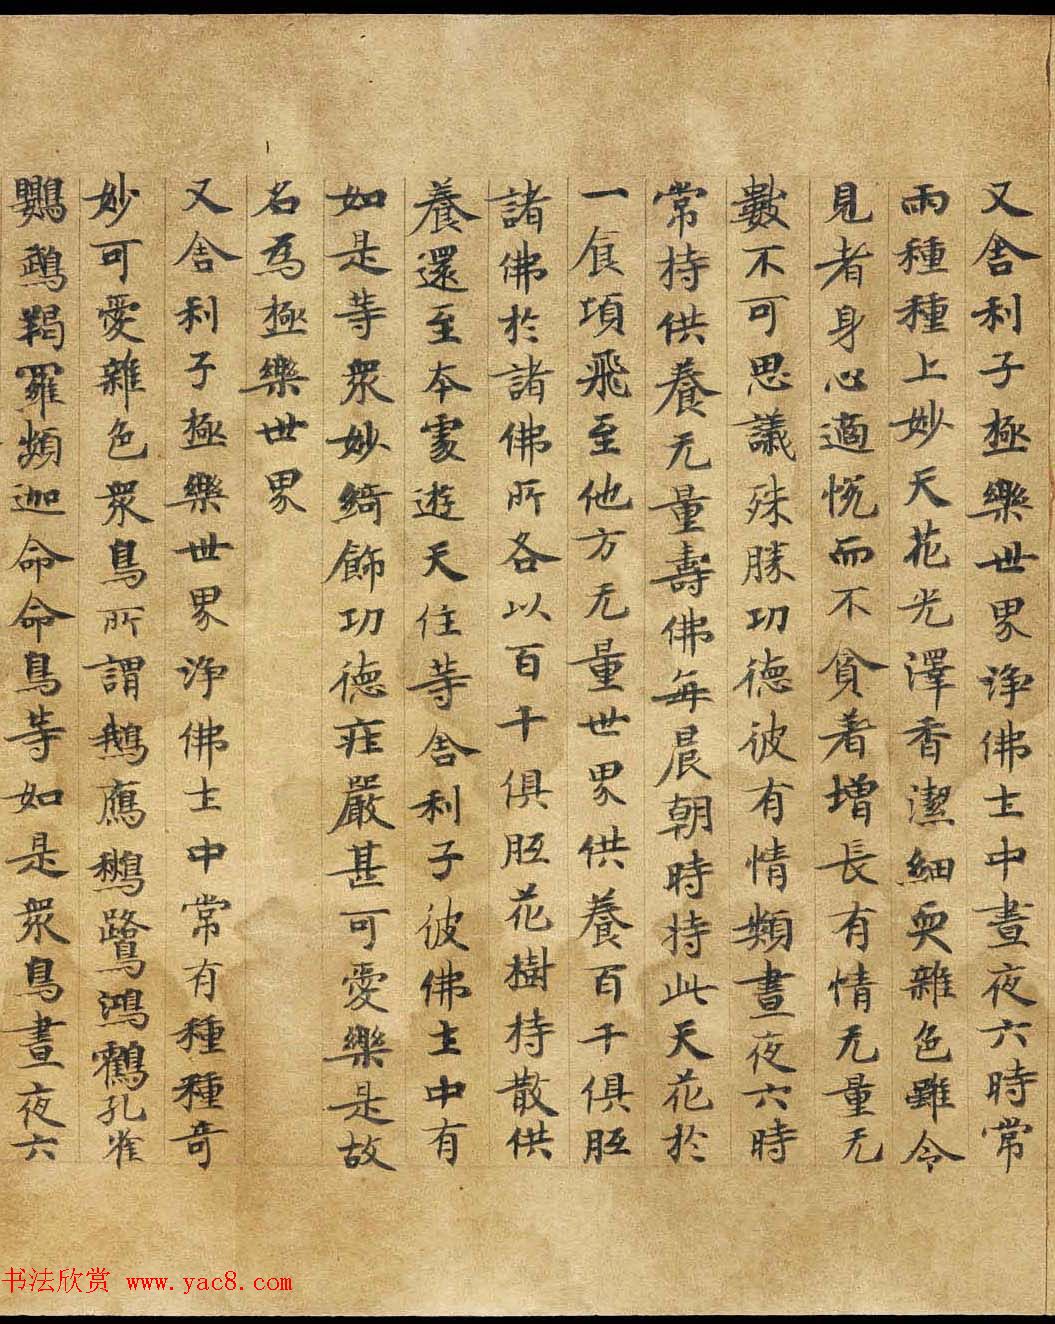 又舍利子極樂世界淨佛土中晝夜六時常
雨種種上妙天花光澤香潔細耎雜色雖令
見者身心適悅而不貪著增長有情无量无
數不可思議殊勝功德彼有情類晝夜六時
常持供養无量壽佛每晨朝時持此天花於
一食頃飛至他方无量世界供養百千俱胝
諸佛於諸佛所各以百千俱胝花樹持散供
養還至本處遊天住等舍利子彼佛土中有
如是等眾妙綺飾功德疰嚴甚可愛樂是故
名為極樂世界
又舍利子極樂世界淨佛土中常有種種奇
妙可愛雜色眾鳥所謂鵝鴈鶖鷺鴻鶴孔雀
鸚鵡羯羅頻迦命命鳥等如是眾鳥晝夜六
书法欣赏 www.yac8.com